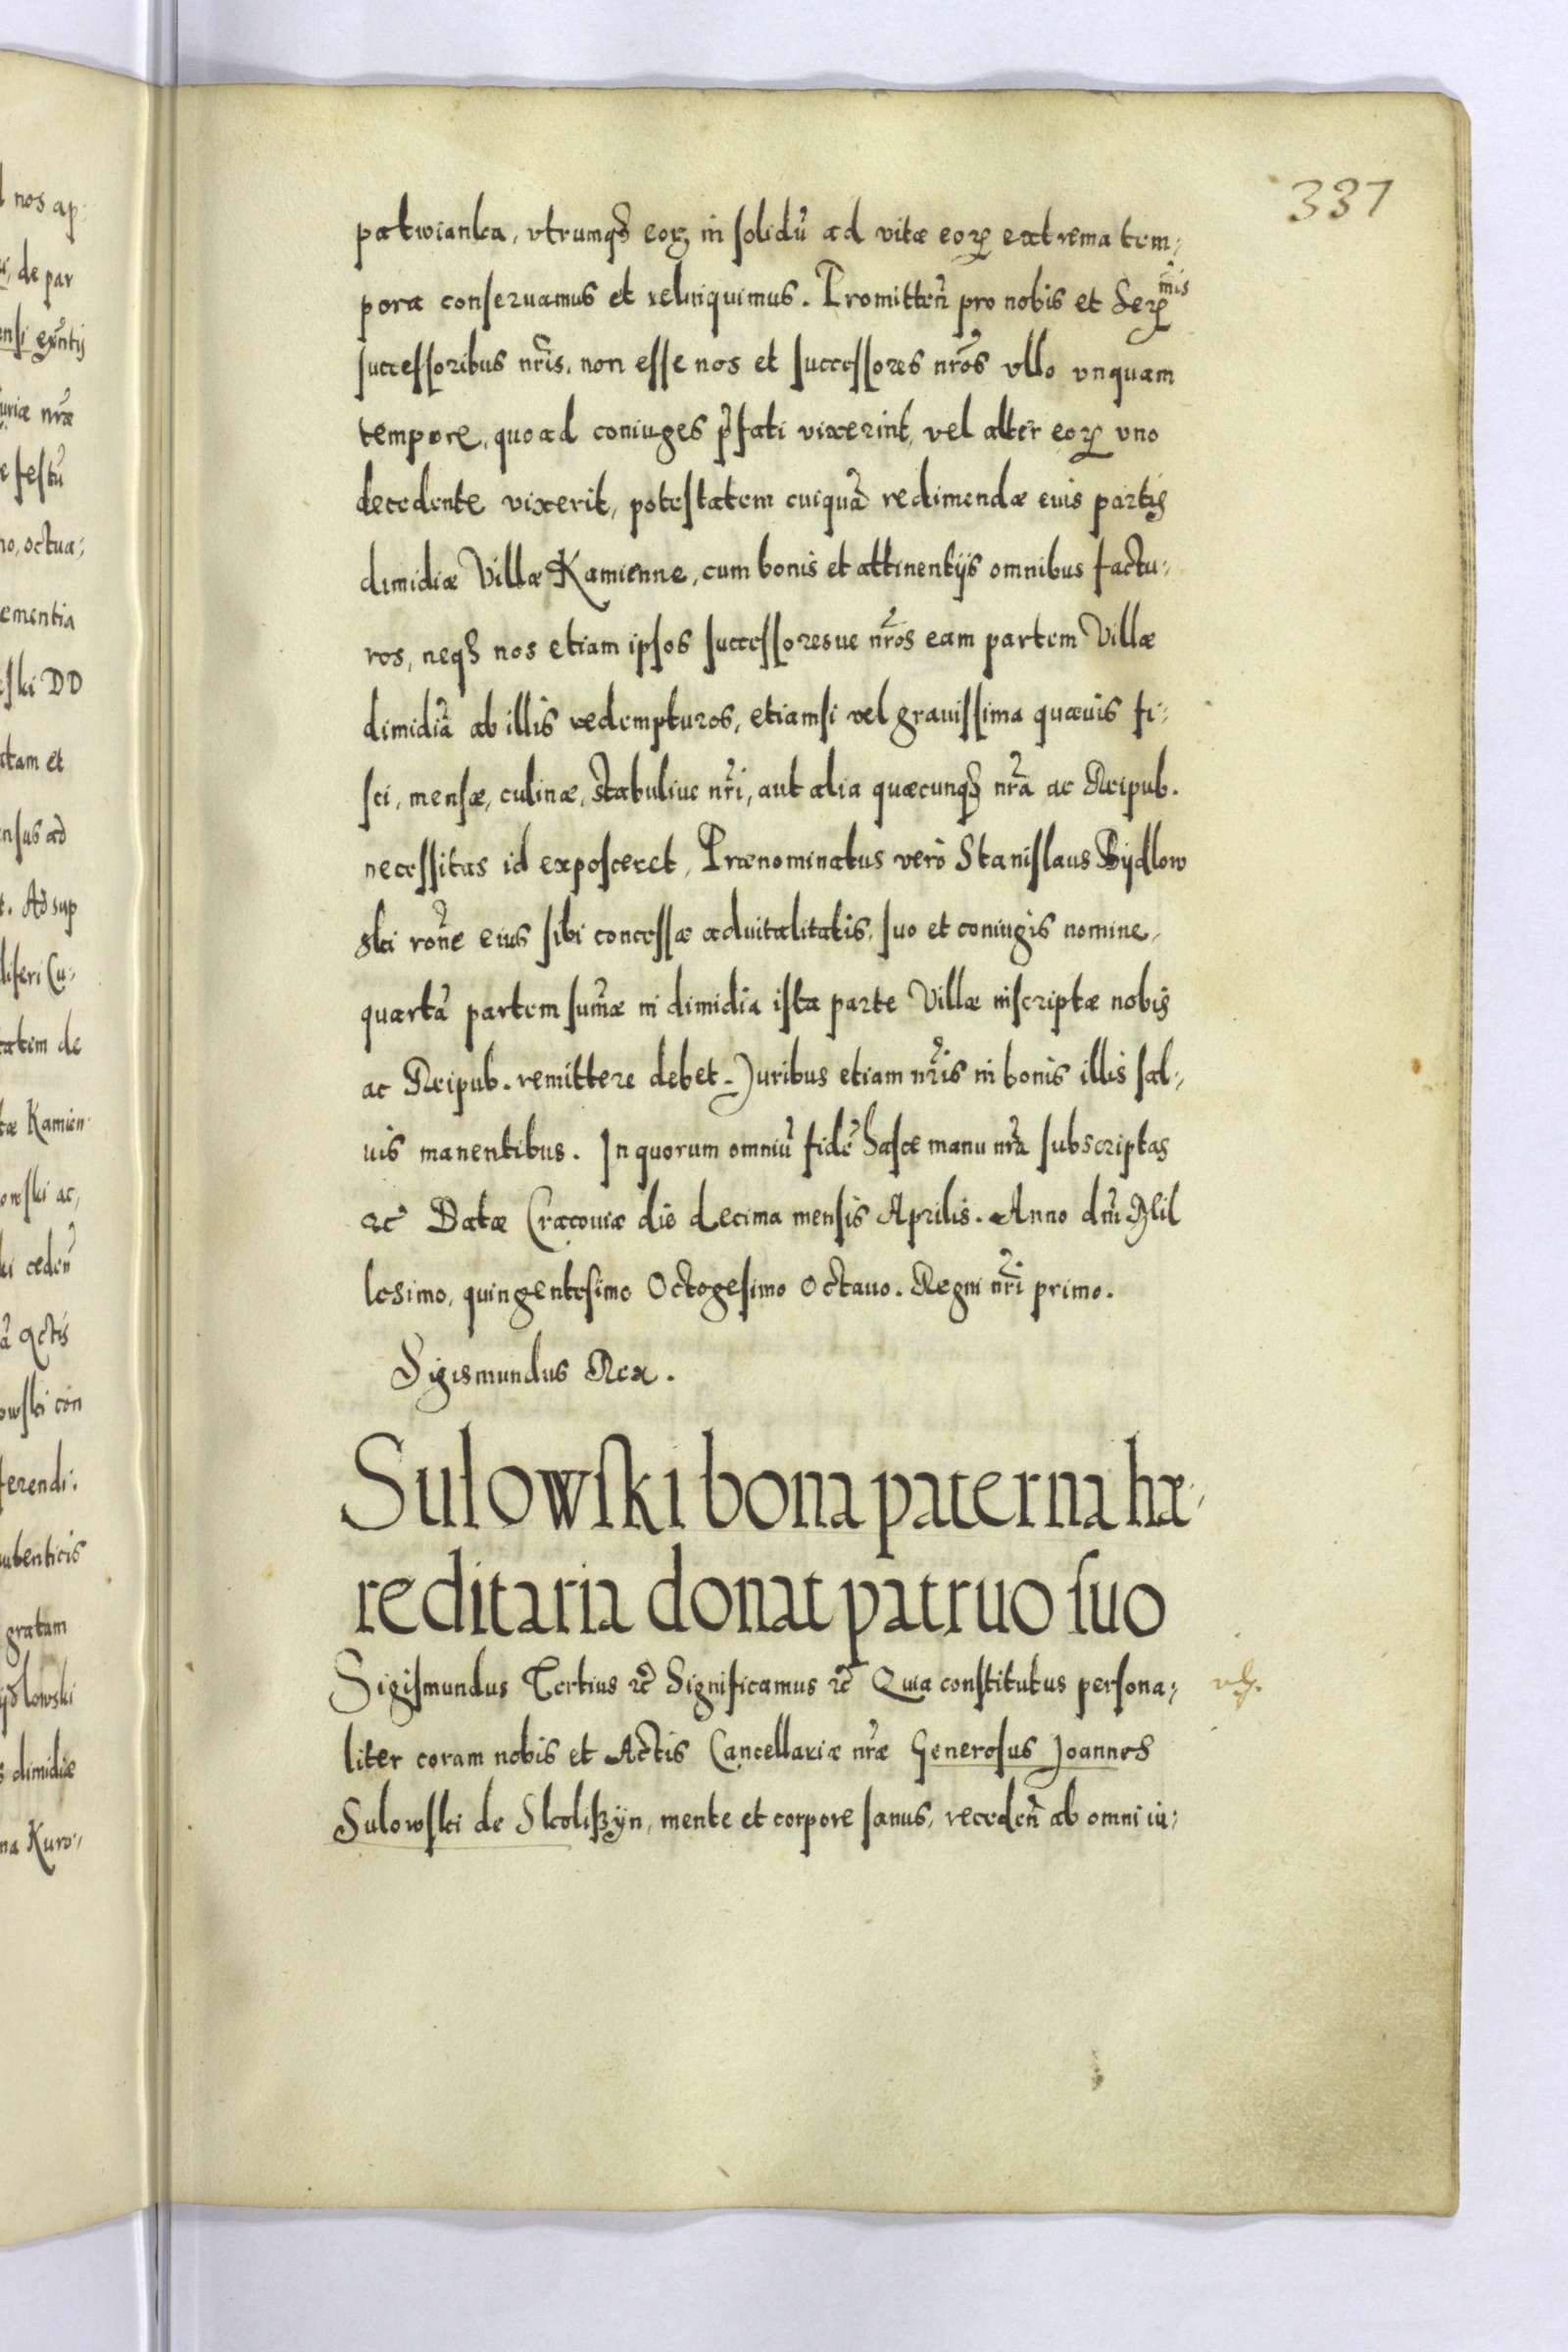 337
patwianka, vtrumqȝ eorꝝ in solidũ ad vitæ eorꝝ extrema tem-
pora conseruamus et relinquimus. Promitteñ pro nobis et Serꝝmis
successoribus nr̃is, non esse nos et successores nr̃os vllo vnquam
tempore, quoad coniuges p̃fati vixerint, vel alter eorꝝ vno
decedente vixerit, potestatem cuiquã redimendæ euis partis
dimidiæ Villæ Kamienne, cum bonis et attinentijs omnibus factu-
ros, neqȝ nos etiam ipsos successoresue nr̃os eam partem Villæ
dimidiã ab illis redempturos, etiamsi vel grauissima quæuis fi-
sci, mensæ, culinæ, stabuliue nr̃i, aut alia quæcunqȝ nr̃a ac Reipub.
necessitas id exposceret, Prænominatus verò Stanislaus Bÿdlow
ski rõne eius sibi concessæ aduitalitatis, suo et coniugis nomine,
quartã partem sum̃æ in dimidia ista parte Villæ inscriptæ nobis
ac Reipub. remittere debet. Juribus etiam nr̃is in bonis illis sal-
uis manentibus. In quorum omniũ fidẽ hasce manu nr̃a subscriptas
ꝛc̃ Datæ Cracouiæ die decima mensis Aprilis. Anno dñi Mil
lesimo, quingentesimo Octogesimo Octauo. Regni nr̃i primo.
Sigismundus Rex.
Sulowski bona paterna hæ-
reditaria donat patruo suo
Sigismundus Tertius ꝛc̃ Significamus ꝛc̃ Quia constitutus persona-
liter coram nobis et Actis Cancellariæ nr̃æ Generosus Joannes
Sulowski de Skolißÿn, mente et corpore sanus, recedeñ ab omni iu-